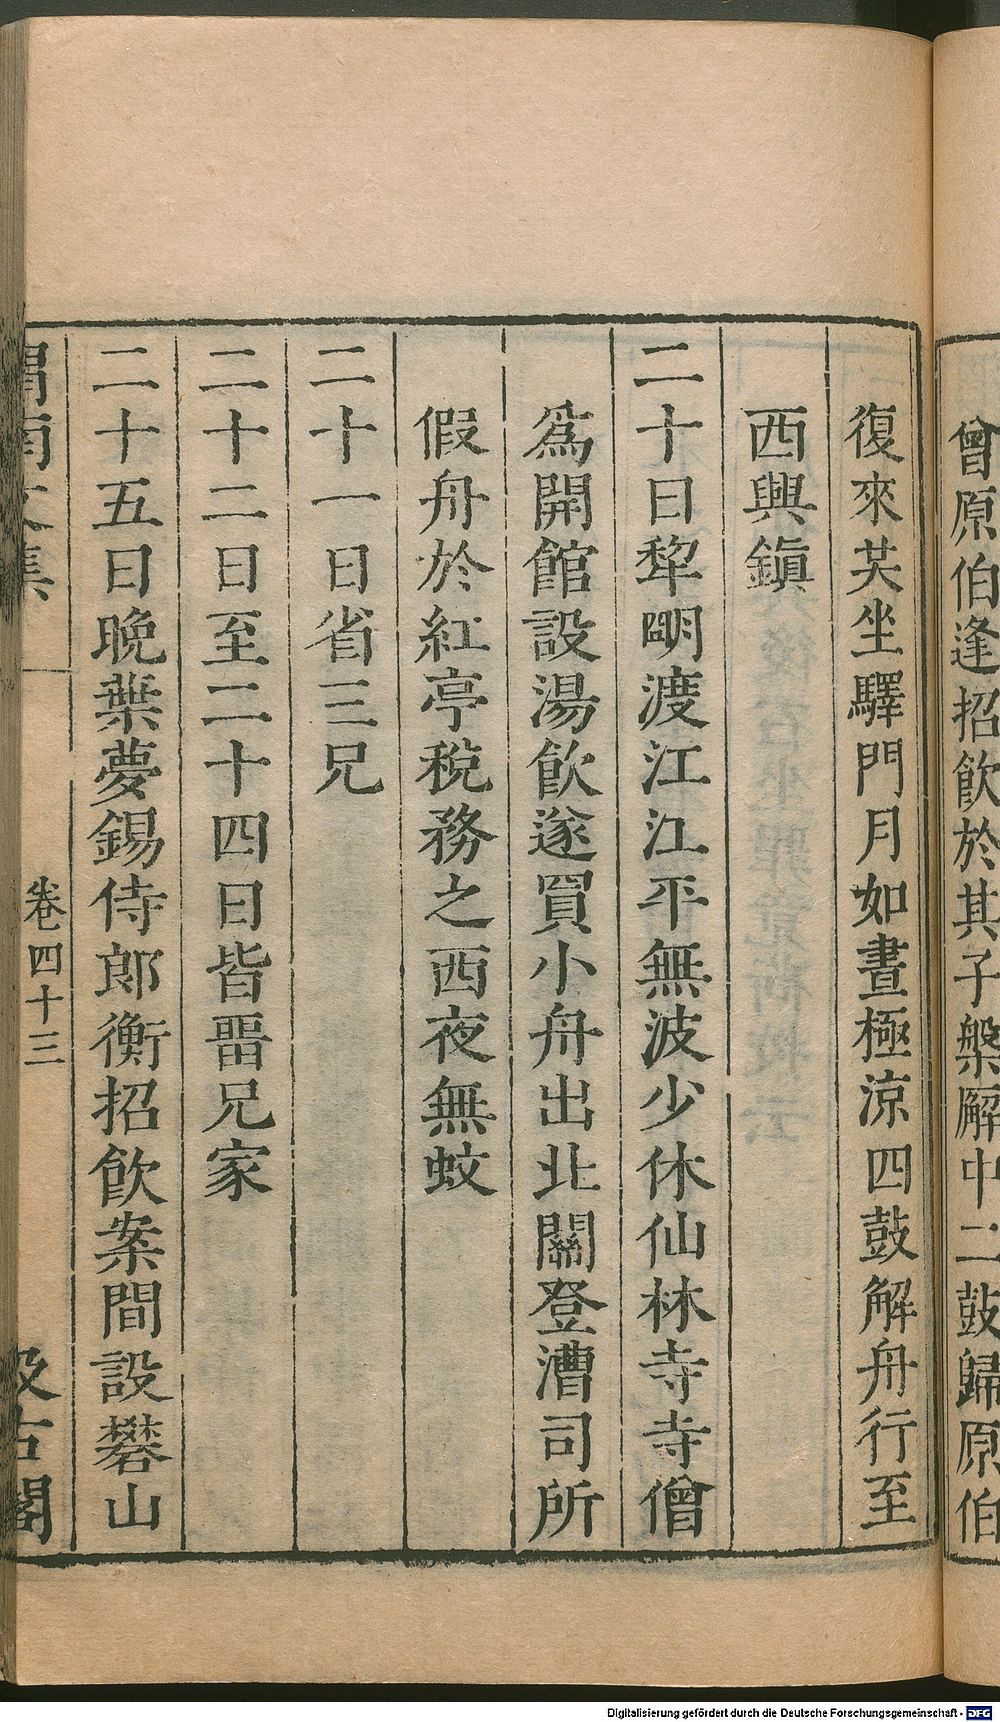 曾原伯逢招飲於其子槃解中二鼓歸原伯
復來共坐驛門月如晝極涼四鼓解舟行至
西興鎮
二十日犂明渡江江平無波少休仙林寺寺僧
爲開館設湯飲遂買小舟出北關登漕司所
假舟於紅亭稅務之西夜無蚊
二十一日省三兄
二十二日至二十四日皆畱兄家
二十五日晚葉夢錫侍郎衡招飲案間設礬山
渭南文集 卷四十三 汲古閣
Digitalisierung gefördert durch die Deutsche Forschungsgemeinschaft - DFG